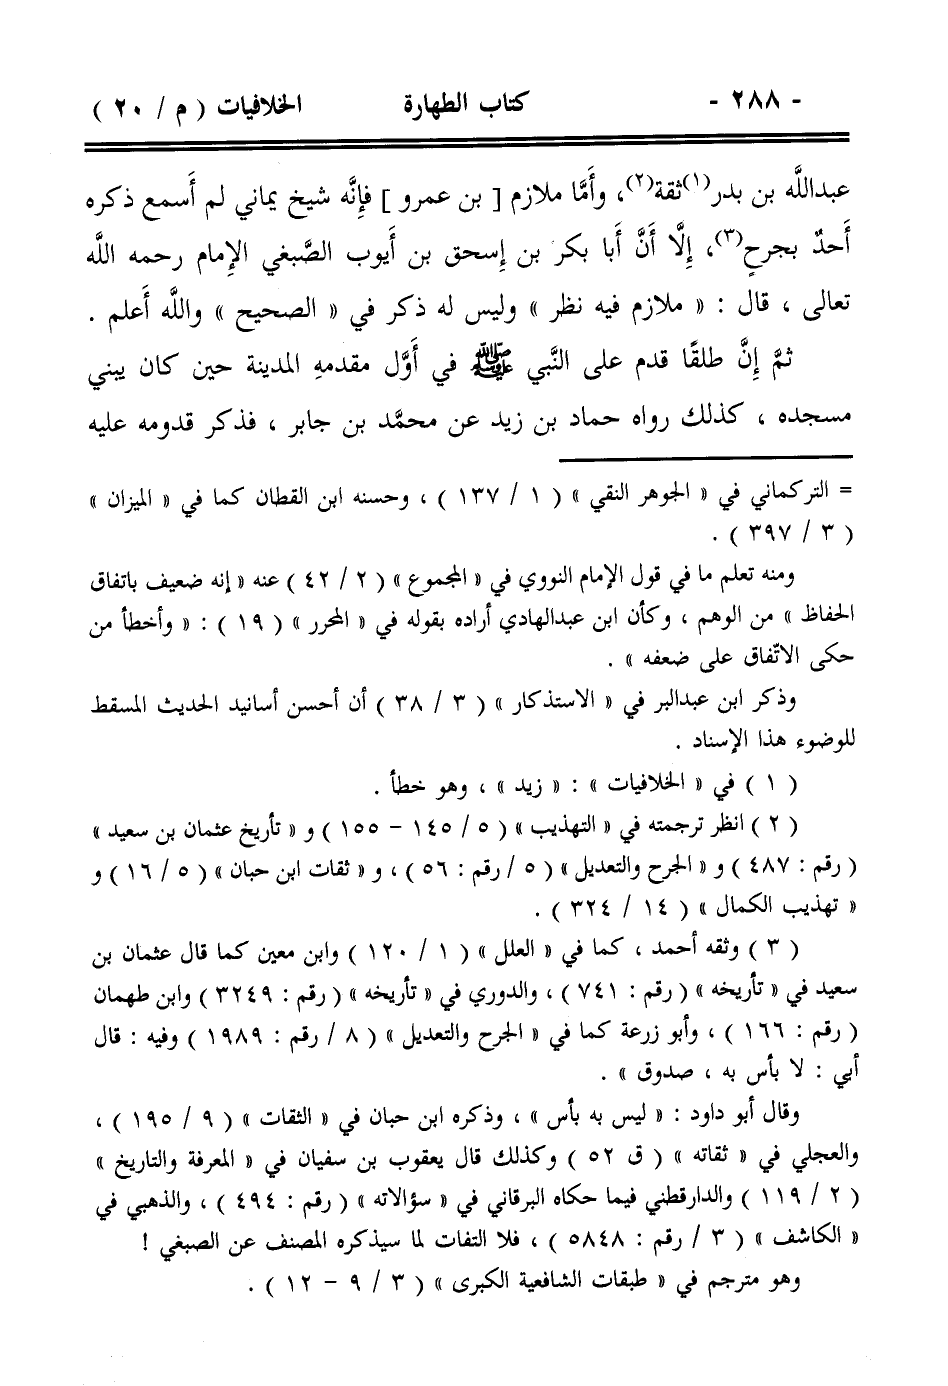 - ٢٨٨ - كتاب الطهارة الخلافيات ( م / ٢٠ )
عبدالله بن بدر(١) ثقة(٢)، وأَمَّا ملازم [ بن عمرو ] فإِنَّه شيخ يماني لم أَسمع ذكره
أَحدٌ بجرحٍ(٣)، إِلَّا أَنَّ أَبا بكر بن إِسحق بن أَيوب الصَّبغي الإِمام رحمه اللَّه
تعالى ، قال : « ملازم فيه نظر » وليس له ذكر في « الصحيح » واللَّه أَعلم .
ثمَّ إِنَّ طلقًا قدم على النَّبي ﷺ في أَوَّل مقدمهِ المدينة حين كان يبني
مسجده ، كذلك رواه حماد بن زيد عن محمَّد بن جابر ، فذكر قدومه عليه
= التركماني في « الجوهر النقي » ( ١ / ١٣٧ ) ، وحسنه ابن القطان كما في « الميزان »
( ٣ / ٣٩٧ ) .
ومنه تعلم ما في قول الإمام النووي في « المجموع » ( ٢ / ٤٢ ) عنه « إنه ضعيف باتفاق
الحفاظ » من الوهم ، وكأن ابن عبدالهادي أراده بقوله في « المحرر » ( ١٩ ) : « وأخطأ من
حكى الاتّفاق على ضعفه » .
وذكر ابن عبدالبر في « الاستذكار » ( ٣ / ٣٨ ) أن أحسن أسانيد الحديث المسقط
للوضوء هذا الإسناد .
( ١ ) في « الخلافيات » : « زيد » ، وهو خطأ .
( ٢ ) انظر ترجمته في « التهذيب » ( ٥ / ١٤٥ - ١٥٥ ) و « تأريخ عثمان بن سعيد »
( رقم : ٤٨٧ ) و « الجرح والتعديل » ( ٥ / رقم : ٥٦ ) ، و « ثقات ابن حبان » ( ٥ / ١٦ ) و
« تهذيب الكمال » ( ١٤ / ٣٢٤ ) .
( ٣ ) وثقه أحمد ، كما في « العلل » ( ١ / ١٢٠ ) وابن معين كما قال عثمان بن
سعيد في « تأريخه » ( رقم : ٧٤١ ) ، والدوري في « تأريخه » ( رقم : ٣٢٤٩ ) وابن طهمان
( رقم : ١٦٦ ) ، وأبو زرعة كما في « الجرح والتعديل » ( ٨ / رقم : ١٩٨٩ ) وفيه : قال
أبي : لا بأس به ، صدوق » .
وقال أبو داود : « ليس به بأس » ، وذكره ابن حبان في « الثقات » ( ٩ / ١٩٥ ) ،
والعجلي في « ثقاته » ( ق ٥٢ ) وكذلك قال يعقوب بن سفيان في « المعرفة والتاريخ »
( ٢ / ١١٩ ) والدارقطني فيما حكاه البرقاني في « سؤالاته » ( رقم : ٤٩٤ ) ، والذهبي في
« الكاشف » ( ٣ / رقم : ٥٨٤٨ ) ، فلا التفات لما سيذكره المصنف عن الصبغي !
وهو مترجم في « طبقات الشافعية الكبرى » ( ٣ / ٩ - ١٢ ) .